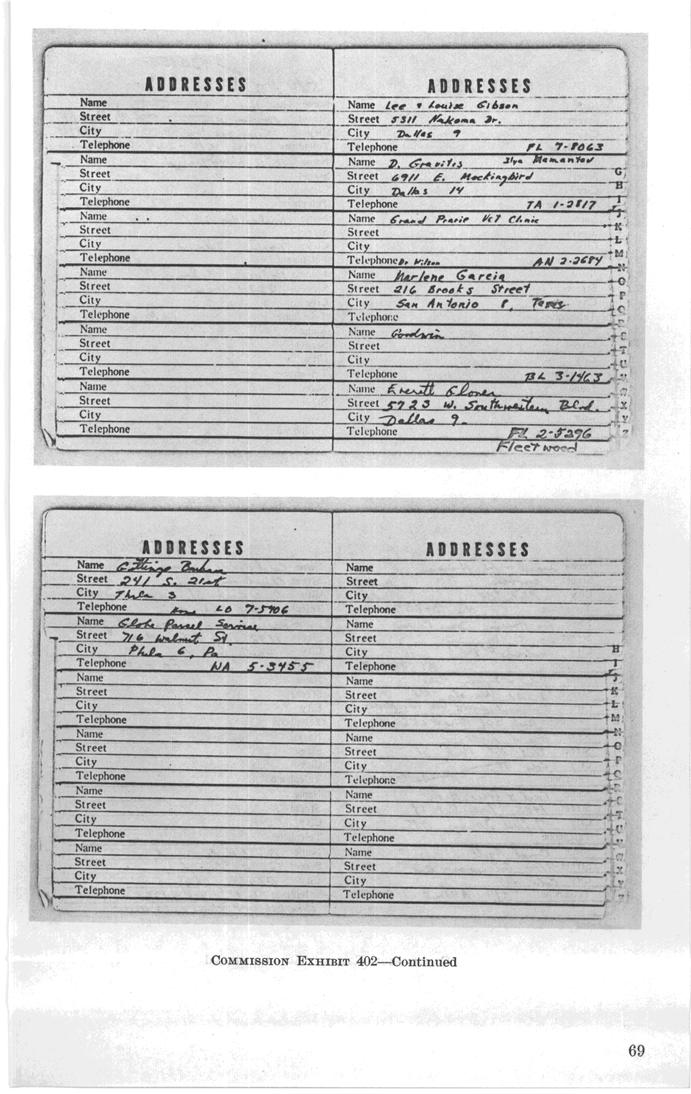 ADDRESSES
Name
Street
City
Telephone
Name
Street
City
Telephone
Name
Street
City
Telephone
Name
Street
City
Telephone
Name
Street
City
Telephone
Name
Street
City
Telephone
ADDRESSES
Name Lee & Louise Gibson
Street 5311 Nakoma Dr.
City Dallas 9
Telephone FL 7-8063
Name D. Gravitis Ilya Mamantov
Street 6911 E. Mockingbird
City Dallas 14
Telephone TA 1-2817
Name Grand Prarie Vet Clinic
Street
City
Telephone Dr Wilson AN 2-2684
Name Marlene Garcia
Street 216 Brooks Street
City San Antonio 8, Texas
Telephone
Name Goodwin
Street
City
Telephone BL 3-1463
Name Everett Glover
Street 5723 W. Southwestern Blvd.
City Dallas 9.
Telephone FL 2-5296
Fleetwood
G
H
I
J
K
L
M
N
O
P
ADDRESSES
Name Gittings
Street 241 S. 21st
City Phila 3
Telephone LO 7-5906
Name Globe Parcel Service
Street 716 Walnut St.
City Phila 6, Pa
Telephone WA 5-3455
Name
Street
City
Telephone
Name
Street
City
Telephone
Name
Street
City
Telephone
Name
Street
City
Telephone
ADDRESSES
Name
Street
City
Telephone
Name
Street
City
Telephone
Name
Street
City
Telephone
Name
Street
City
Telephone
Name
Street
City
Telephone
Name
Street
City
Telephone
H
I
J
K
L
M
N
O
P
COMMISSION EXHIBIT 402—Continued
69